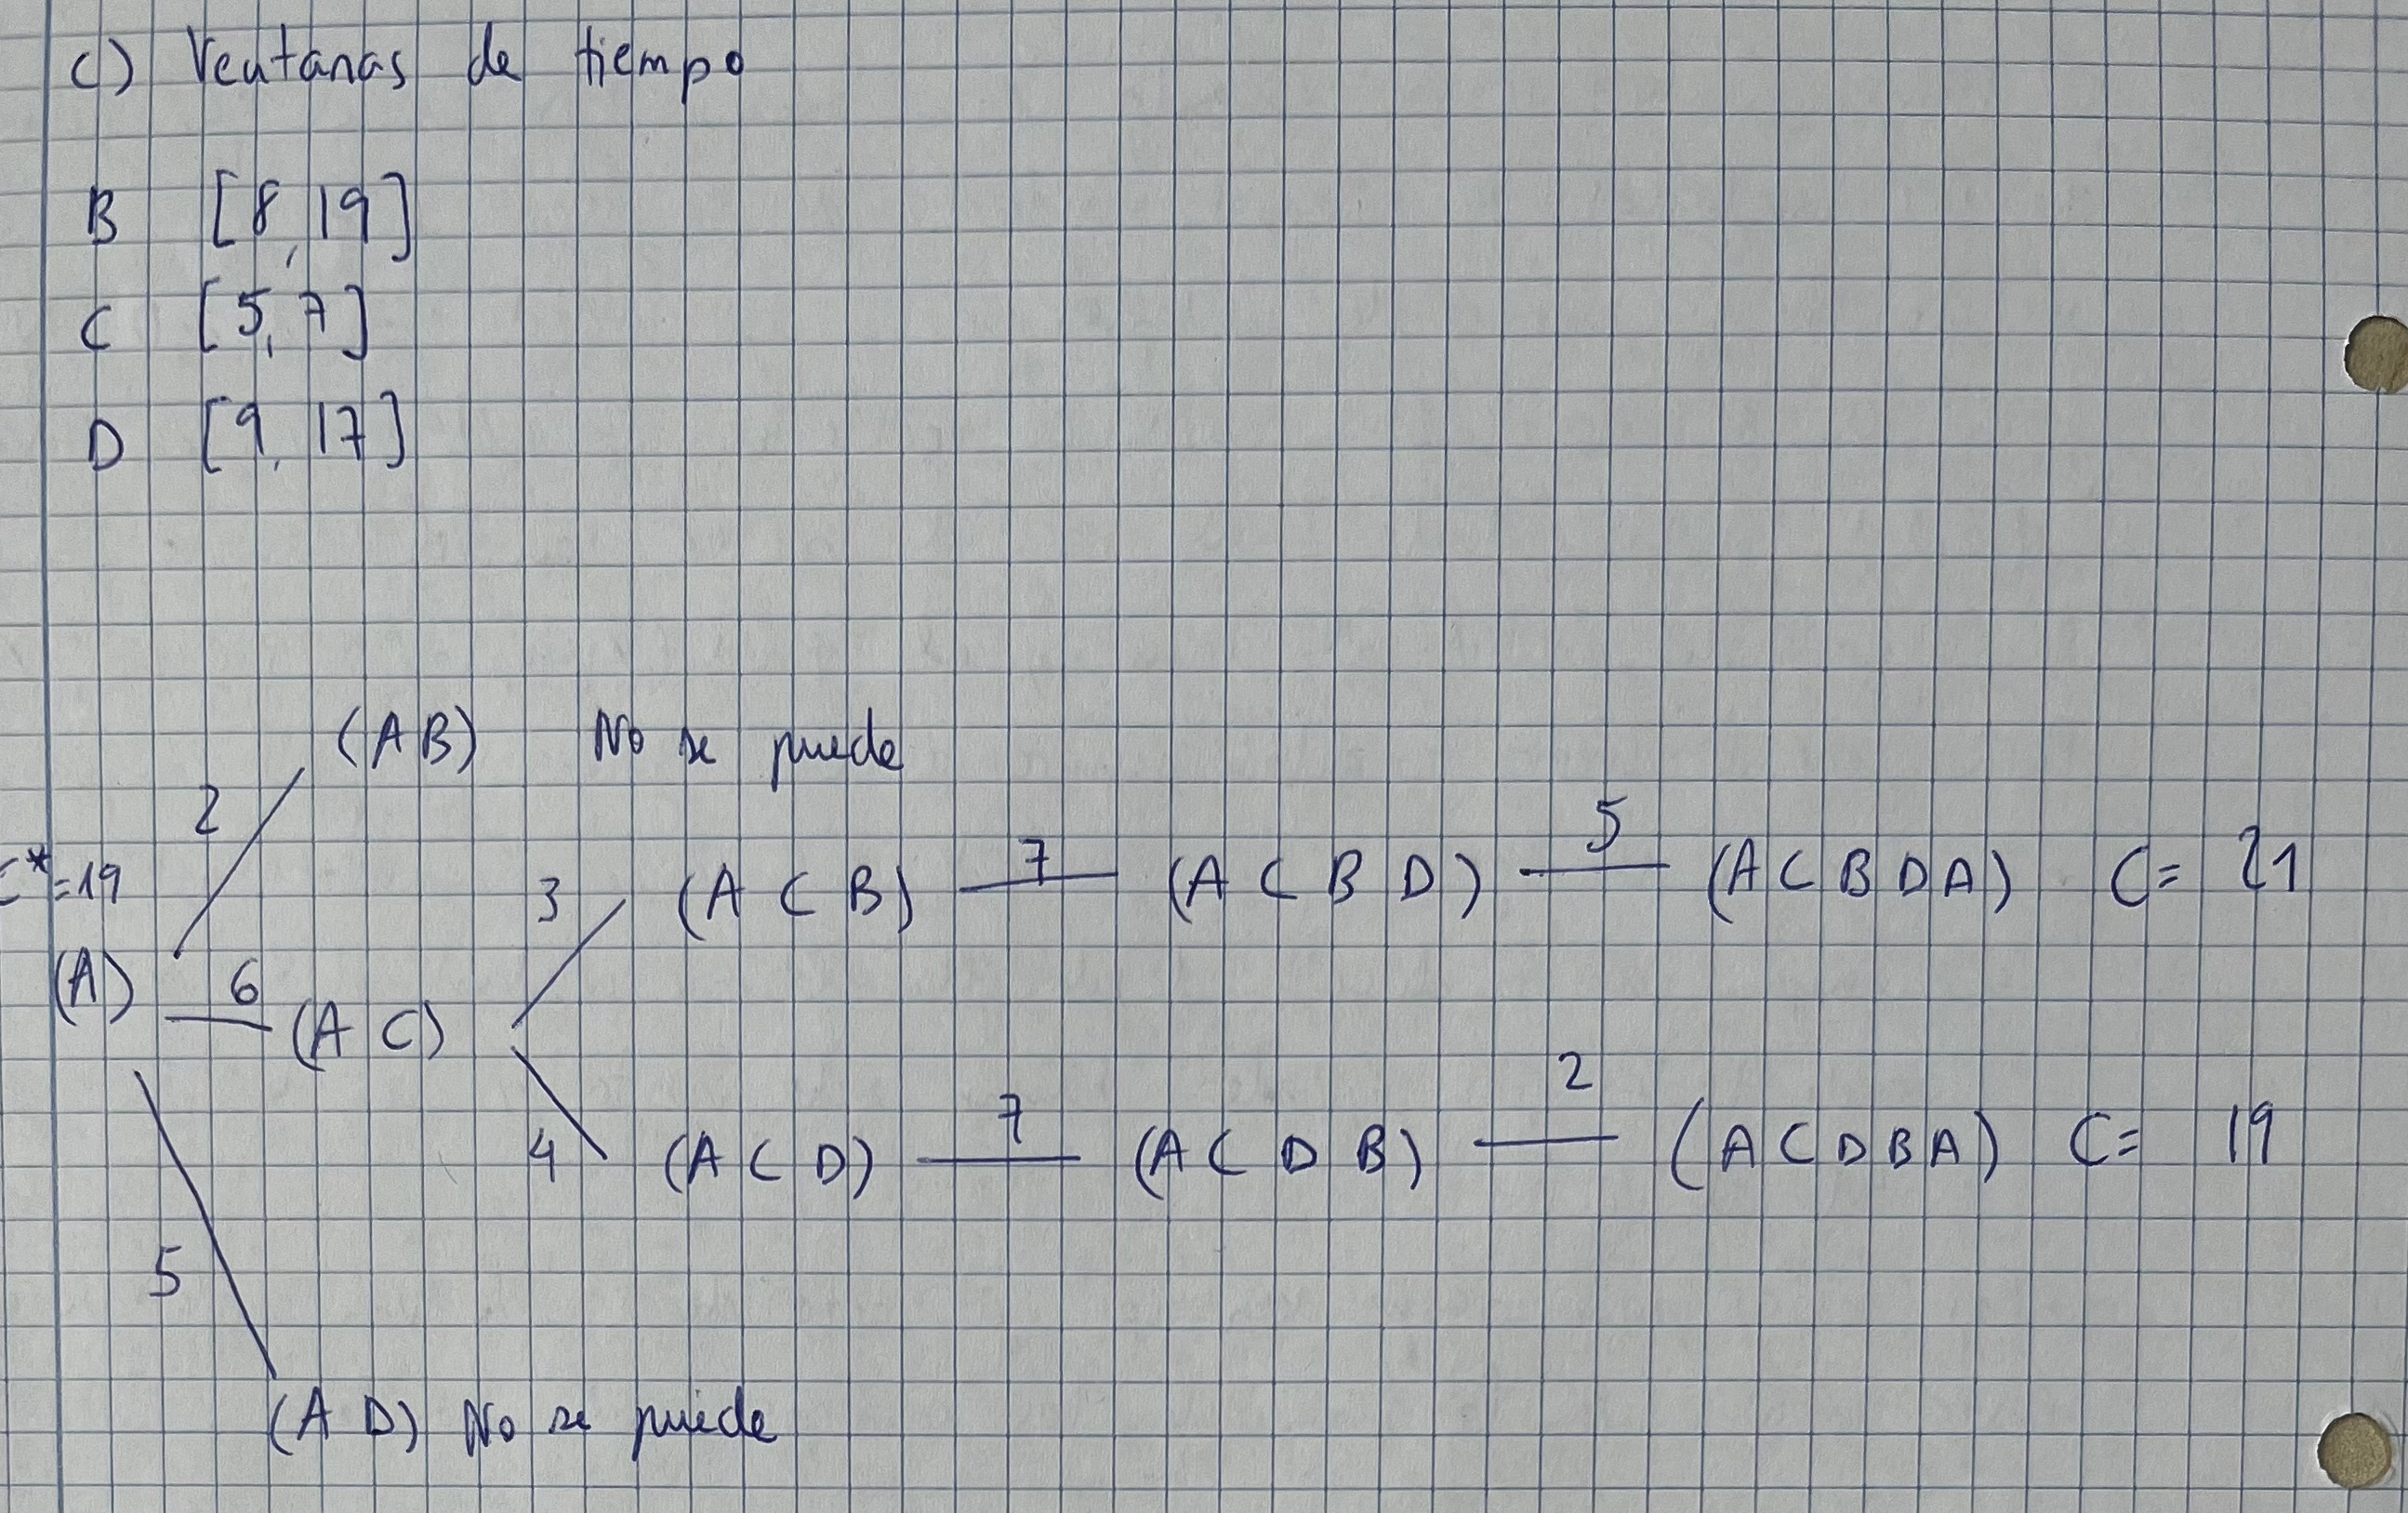 c) Ventanas de tiempo
B [8, 19]
C [5, 7]
D [9, 17]
(AB) No se puede
2
C*=19
3 (A C B) 7 (A C B D) 5 (A C B D A) C= 21
(A) 6 (A C)
4 (A C D) 7 (A C D B) 2 (A C D B A) C= 19
5
(A D) No se puede